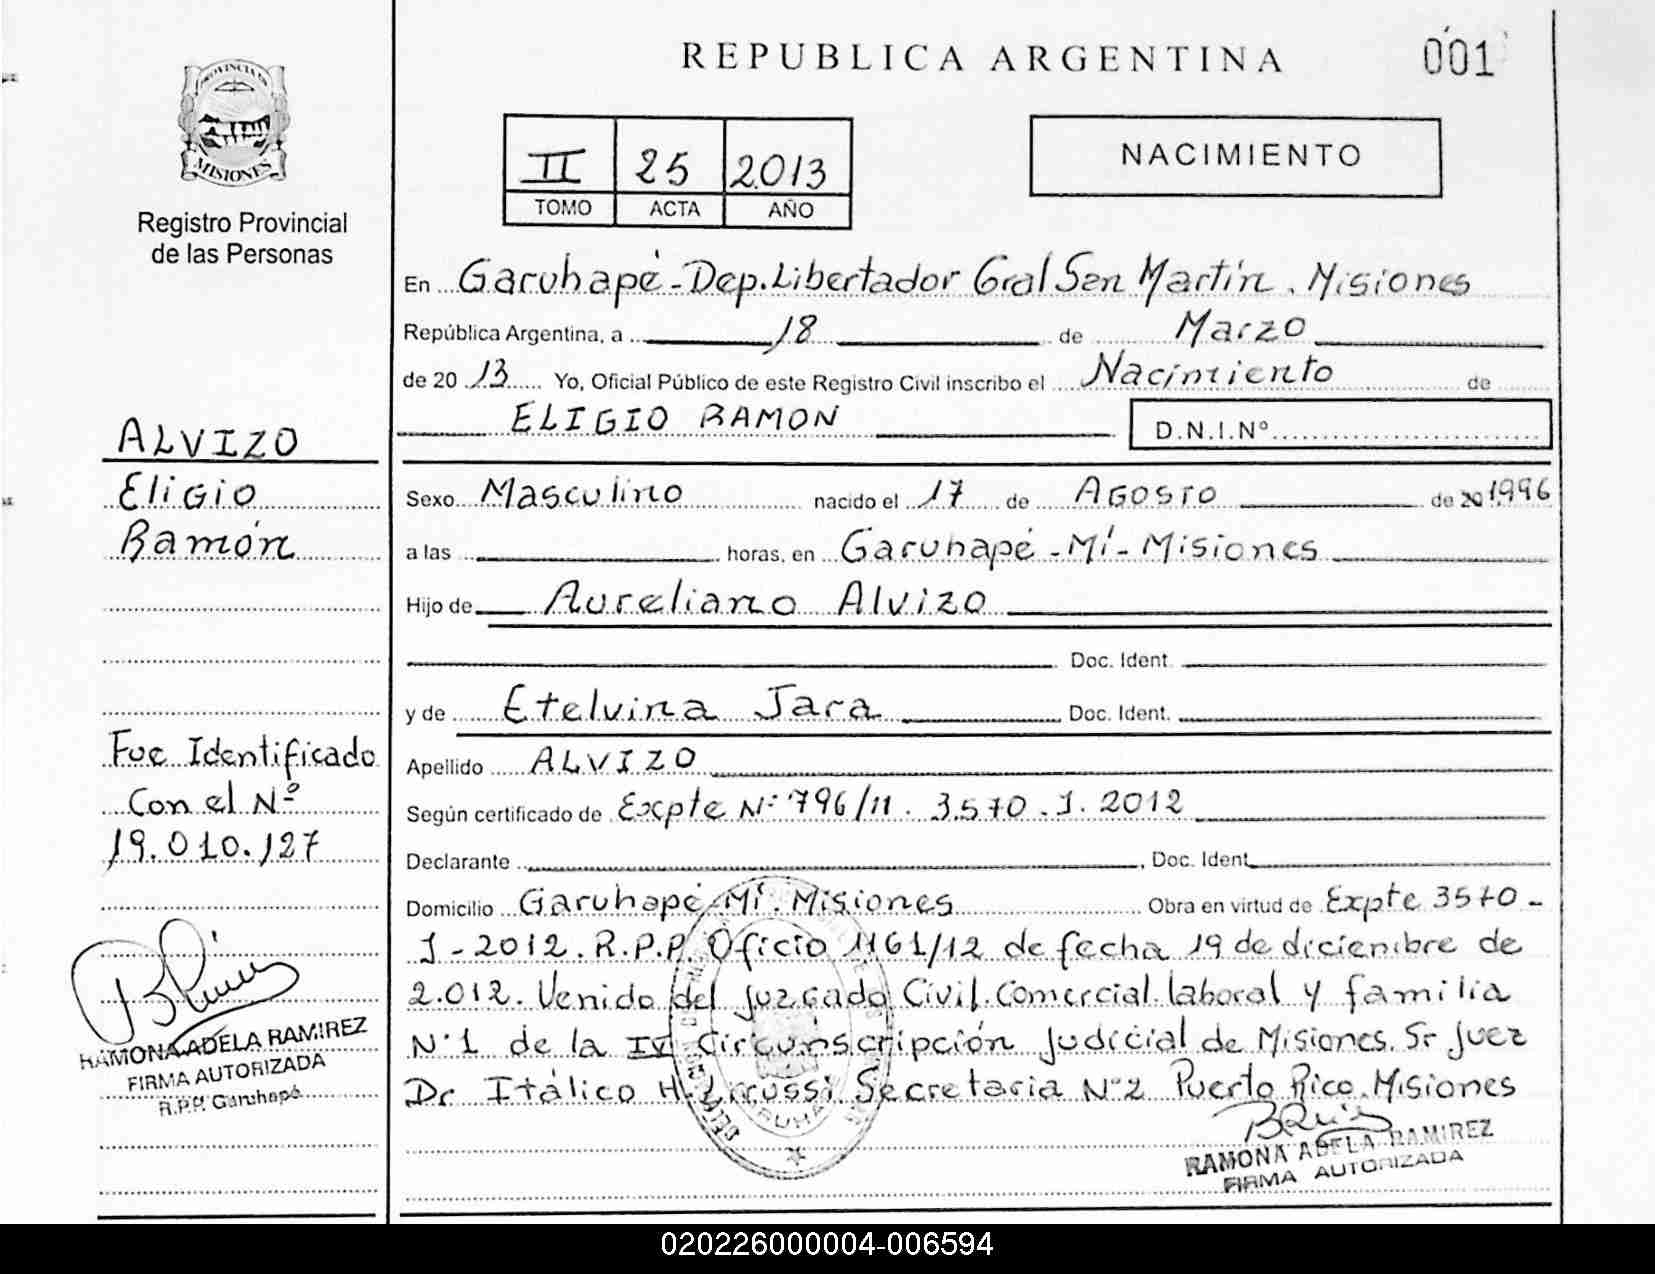 REPUBLICA ARGENTINA
001
PROVINCIA DE
MISIONES
Registro Provincial
de las Personas
II 25 2013
TOMO ACTA AÑO
NACIMIENTO
En Garuhapé - Dep. Libertador Gral San Martín. Misiones
República Argentina, a 18 de Marzo
de 20 13 Yo, Oficial Público de este Registro Civil inscribo el Nacimiento de
ELIGIO RAMON
D.N.I.Nº
Sexo Masculino nacido el 17 de Agosto de 20 1996
a las horas, en Garuhapé - Mí - Misiones
Hijo de Aureliano Alvizo
Doc. Ident.
y de Etelvina Jara Doc. Ident.
Apellido ALVIZO
Según certificado de Expte Nº 796/11. 3570. J. 2012
Declarante , Doc. Ident.
Domicilio Garuhapé - Mí. Misiones Obra en virtud de Expte 3570 -
J - 2012. R.P.P. Oficio 1161/12 de fecha 19 de diciembre de
2.012. Venido del juzgado Civil. Comercial. laboral y familia
Nº 1 de la IV Circunscripción Judicial de Misiones. Sr Juez
Dr Itálico H. Secretaria Nº 2 Puerto Rico. Misiones
RAMONA ADELA RAMIREZ
FIRMA AUTORIZADA
ALVIZO
Eligio
Ramón
Fue Identificado
Con el Nº
19.010.127
RAMONA ADELA RAMIREZ
FIRMA AUTORIZADA
R.P.P. Garuhapé
020226000004-006594